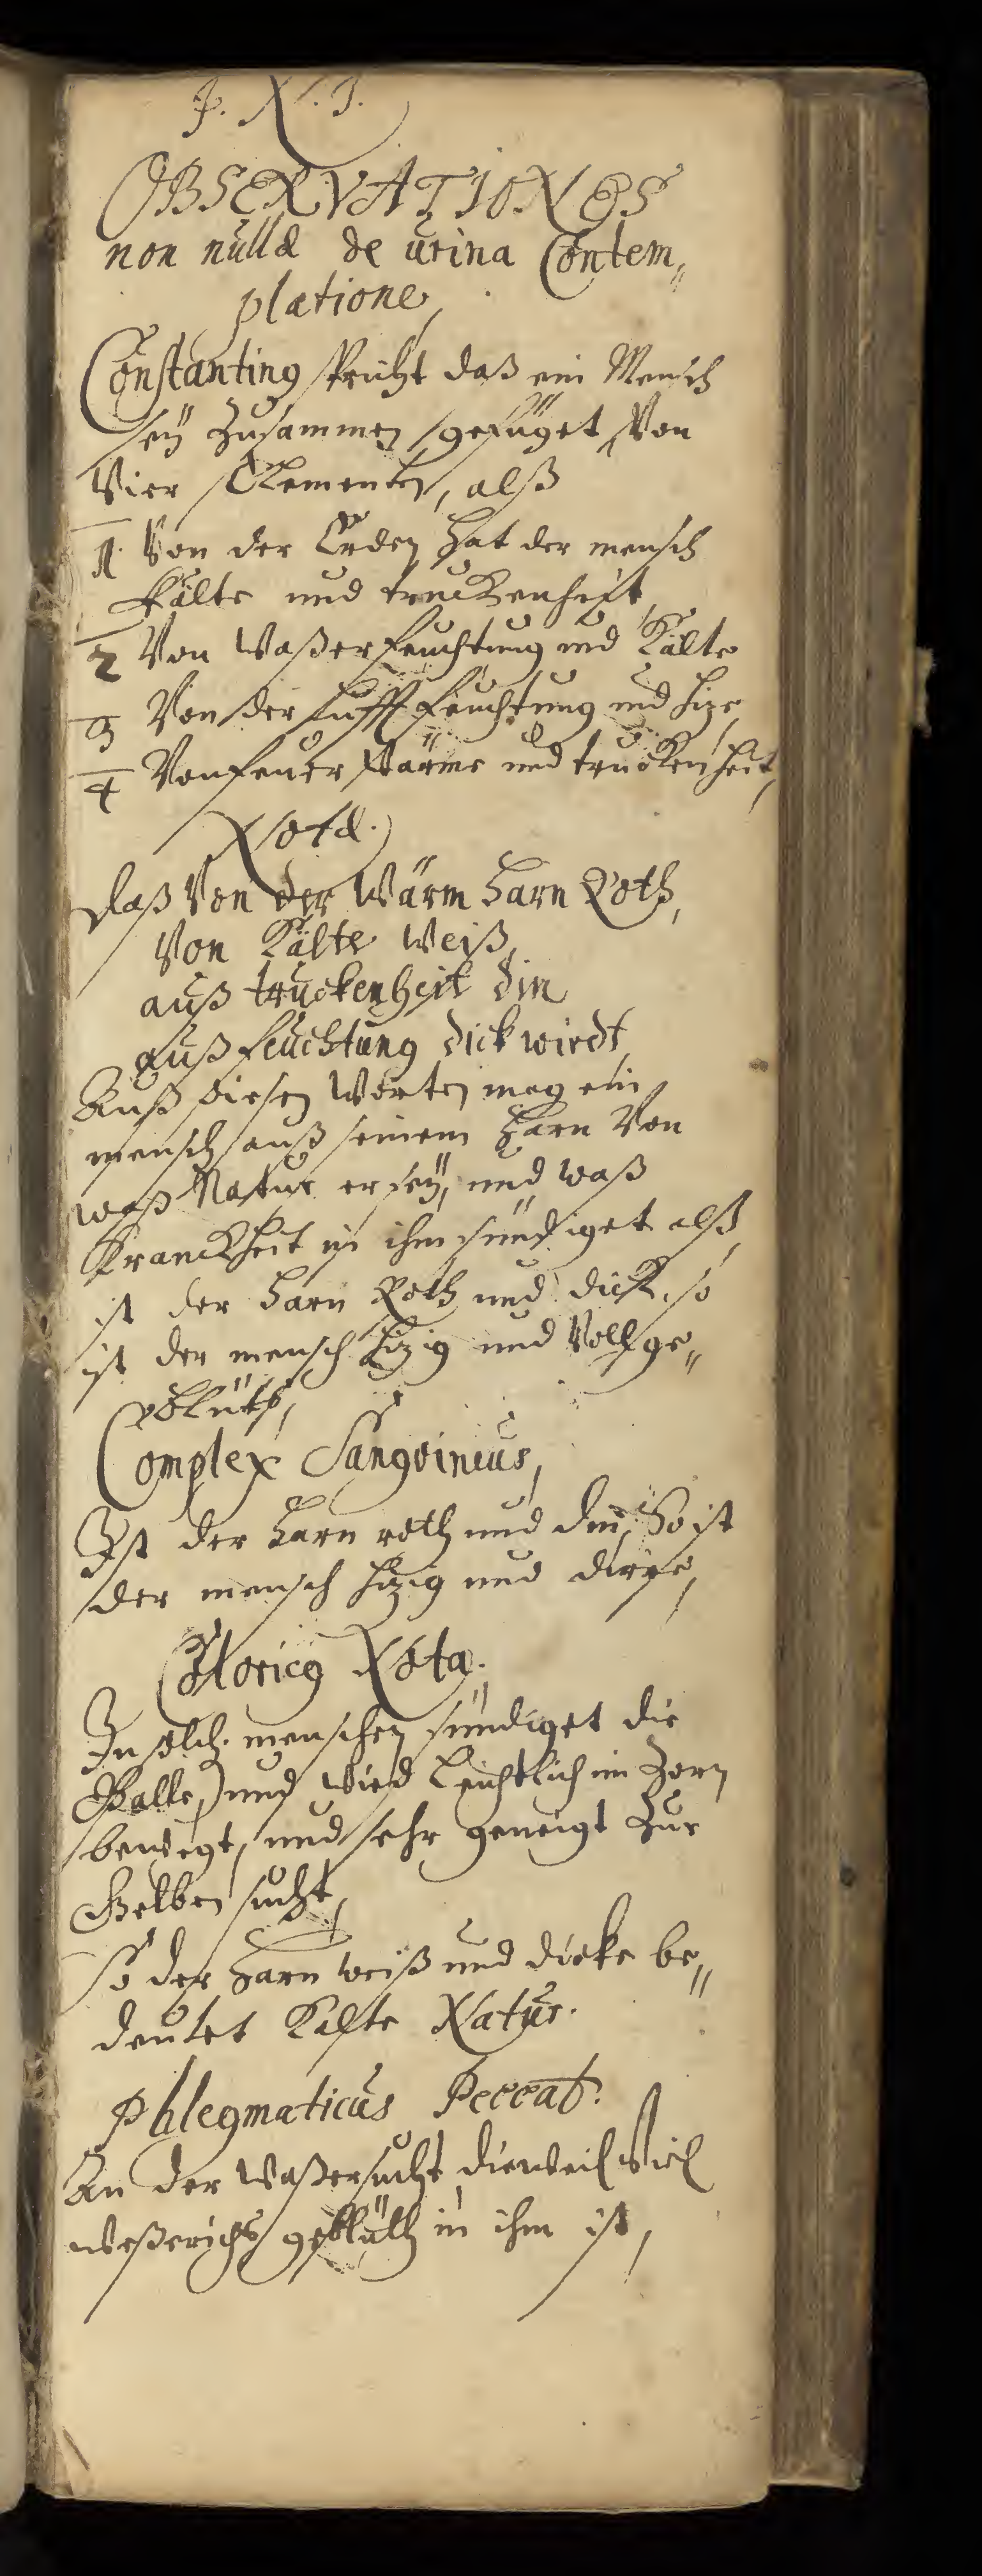 J. N. J.
OBSERVATIONES
non nullæ de urina Contem„
platione,
Constantinus spricht daß ein Mensch
seÿ Zusammen gefüget, Von
Vier Elementen, alß
1. Von der Erden hat der mensch
Kälte und truckenheit,
2 Von Waßer feuchtung und Kälte
3 Von der Lufft feuchtung und hize,
4 Von feüer Wärme und truckenheit,
Nota.
daß Von der Wärm harn Roth,
Von Kälte Weiß,
auß truckenheit din
auß feuchtung dick wirdt,
Auß diesen Worten mag ein
mensch auß seinem harn Von
waß Natur er seÿ, und waß
Kranckheit in ihm sündiget alß,
ist der harn Roth und dick, so
ist der mensch hizig und Voll ge„
blüth,
Complex Sangvineus,
Ist der harn roth und din, So ist
der mensch hizig und dirre,
Coloricus Nota.
In solch. menschen sündiget die
Galle, und wird leichtlich im Zorn
bewegt, und sehr geneigt Zur
Gelben sucht,
So der harn weiß und dicke be„
deutet Kalte Natur.
Phlegmaticus Peccat.
An der Waßersucht, dieweil Viel
weßerichs geblüth in ihm ist,